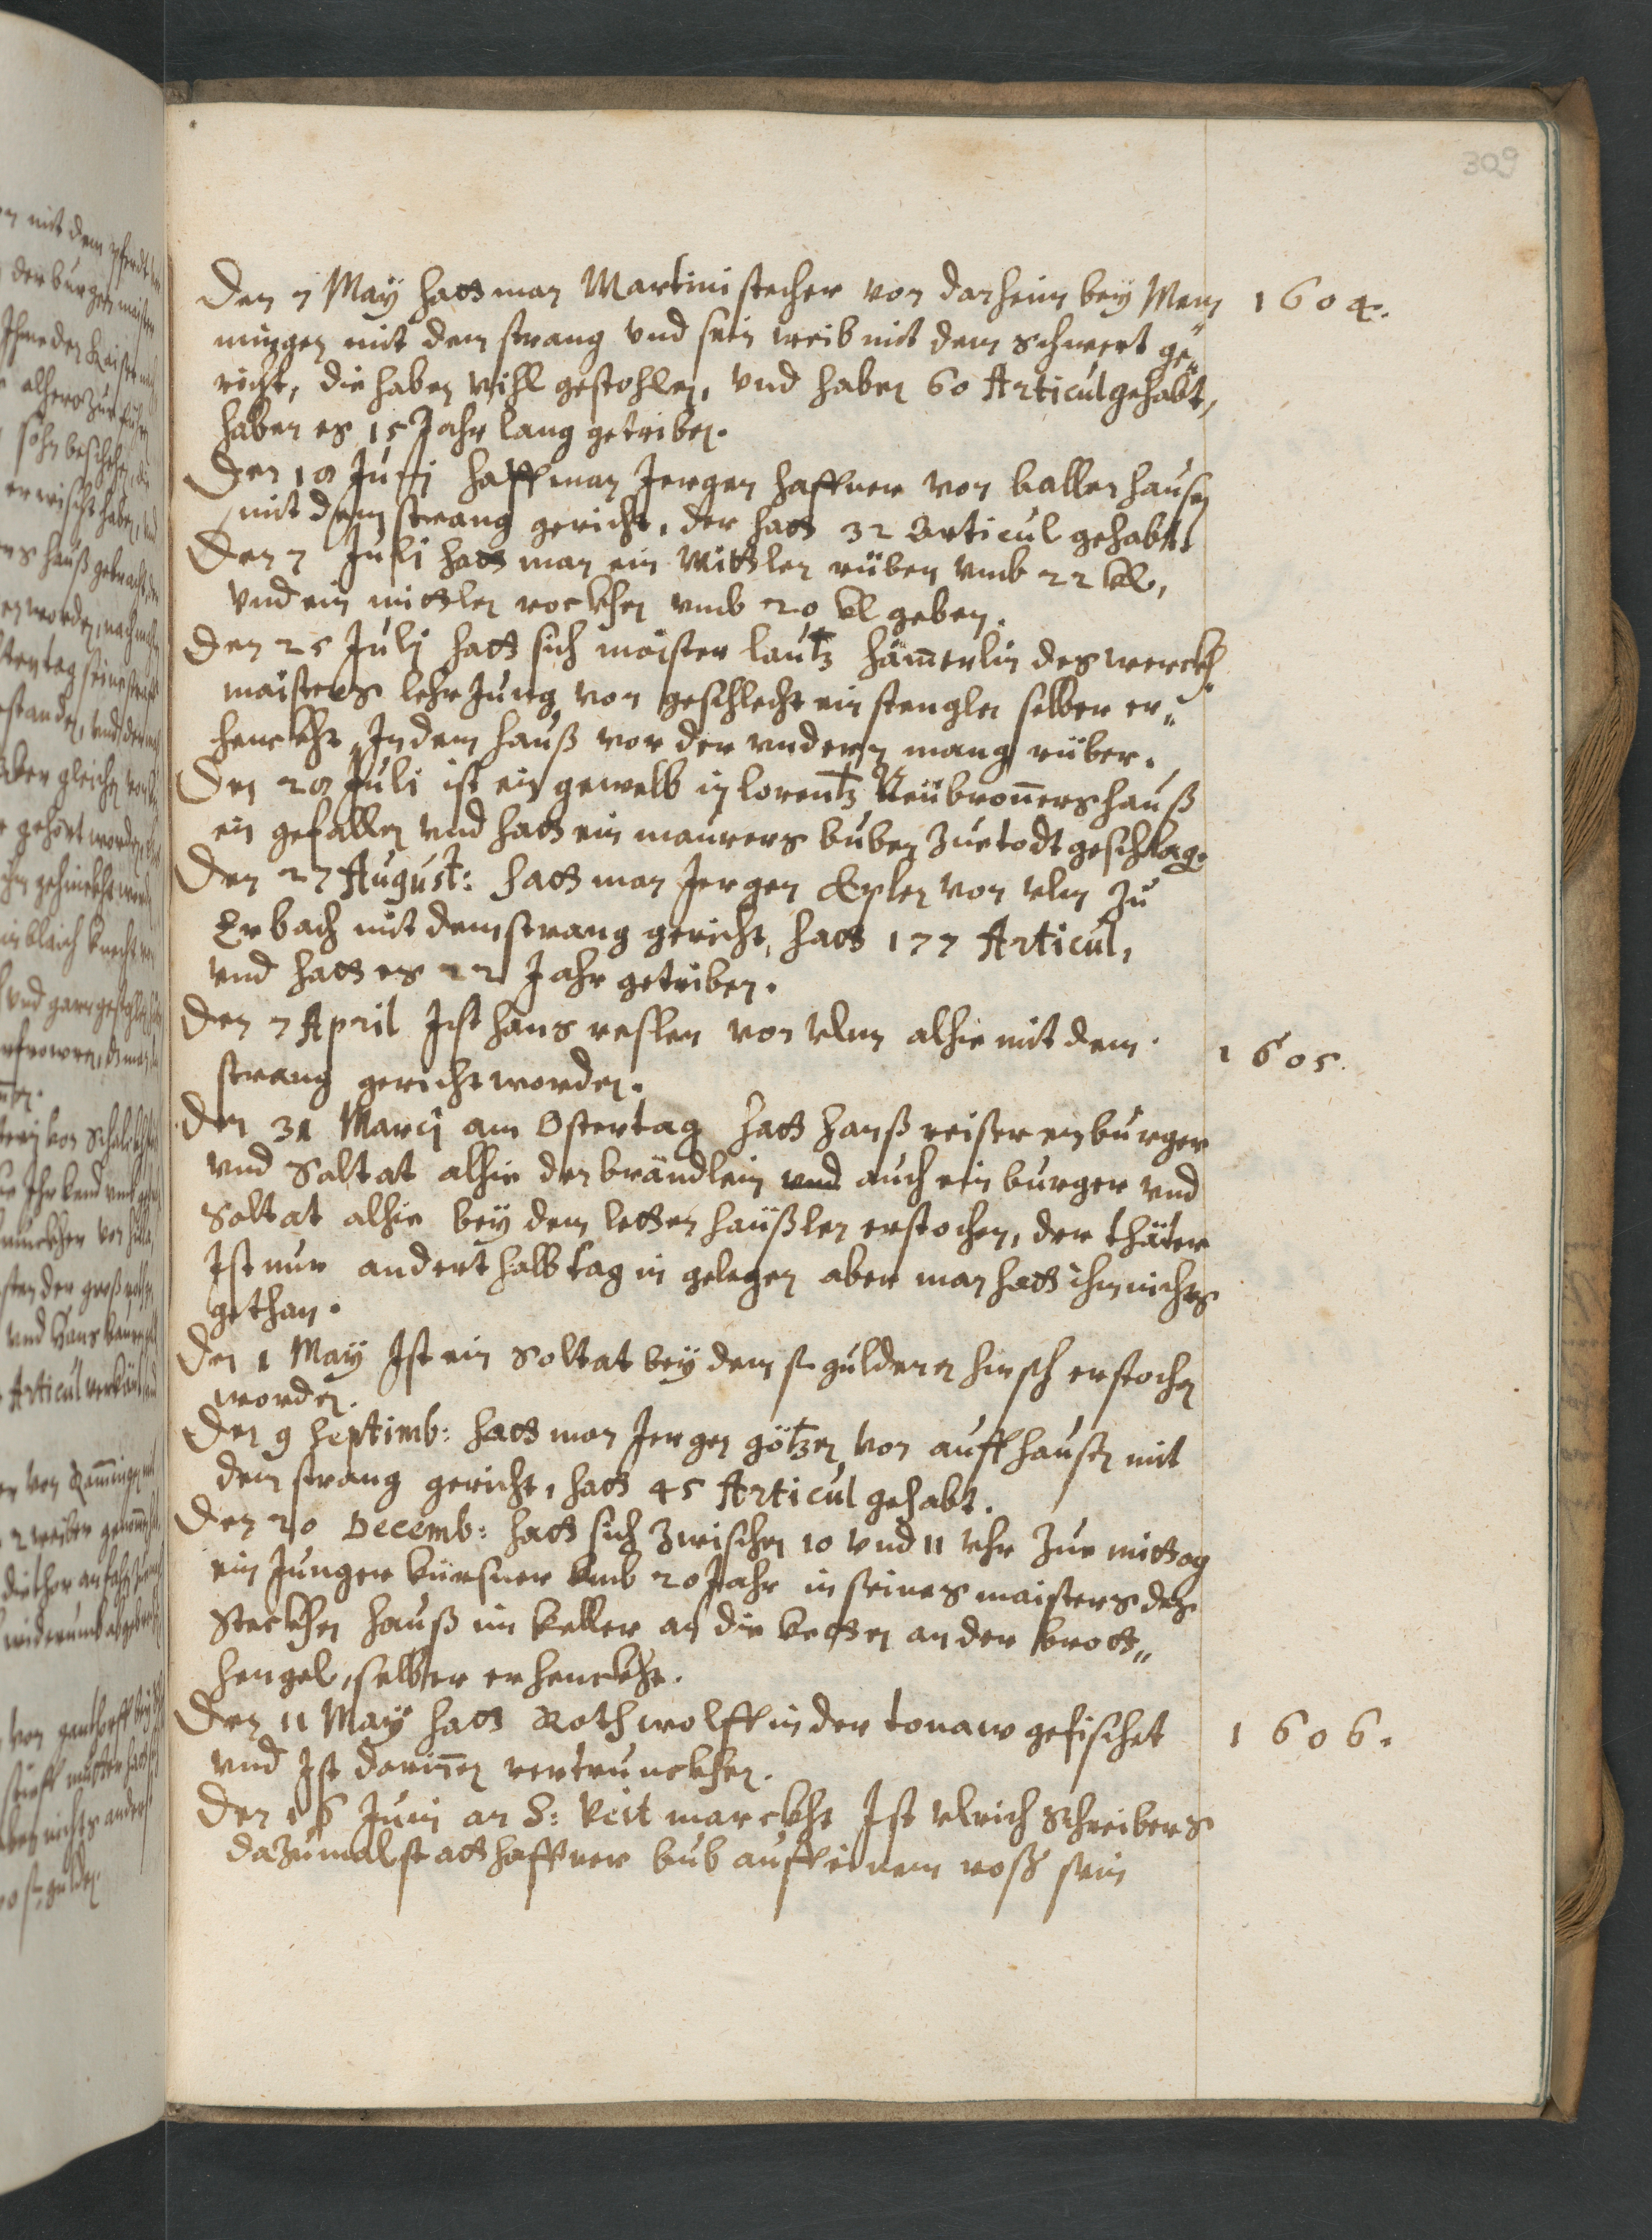 309
1604.
Den 7 May hatt man Martini stecher von darheim bey Mem„
mingen mit dem strang vnd sein weib mit dem schwert ge„
richt, die haben vihl gestohlen, vnd haben 60 Articul gehabt,
haben es 15 Jahr lang getriben.
Den 19 Junj hatt man Jergen haffner von ballenhausen
mit dem strang gericht, der hatt 32 Articul gehabt
Den 7 Juli hatt man ein Mittlen rüben vmb 22 kl,
Vnd ein mittlen rockhen vmb 20 kl geben.
Den 25 Julj hatt sich maister lautz hämerlin des werckh
maisters lehr Jung von geschlecht ein stengler selber er„
henckht, In dem hauß vor der vndern mang rüber.
Den 29 Juli ist ein gewelb in lorentz Neübronnershauß
ein gefallen vnd hatt ein maurers buben zue todt geschlag.
Den 27 August: hatt man Jergen Epler von vlm zu
Erbach mit dem strang gericht, hatt 177 Articul,
vnd hatt es 22 Jahr getriben.
1605.
Den 7 April Ist hans resler von vlm alhie mit dem
strang gericht worden.
Den 31 Marcj am Ostertag hatt hanß reiser ein burger
vnd Saltat alhie den brändlein vnd auch ein burger vnd
Soltat alhie bey dem letten haüßlen erstochen, der thäter
Ist nur anderthalb tag in gelegen aber man hatt ihm nichts
gethan.
Den 1 May Ist ein Soltat bey dem gulderen hirsch erstochen
worden.
Den 9 Septimb: hatt man Jergen götzen von auffhausen mit
dem strang gericht, hatt 45 Articul gehabt.
Den 20 Decemb: hatt sich zwischen 10 vnd 11 vhr zue mittag
ein Junger kürsner vmb 20 Jahr in seines maisters des
Steckhen hauß im keller an die ketten an der brott„
hengel, selber er henckht.
1606.
Den 11 May hatt Roth wolff in der tonaw gefischet
vnd Ist darinnen vertrunckhen.
Den 16 Juni an S: Veit marckht Ist vlrich Schreibers
dazumal statthaffner bub auff einem roß sein